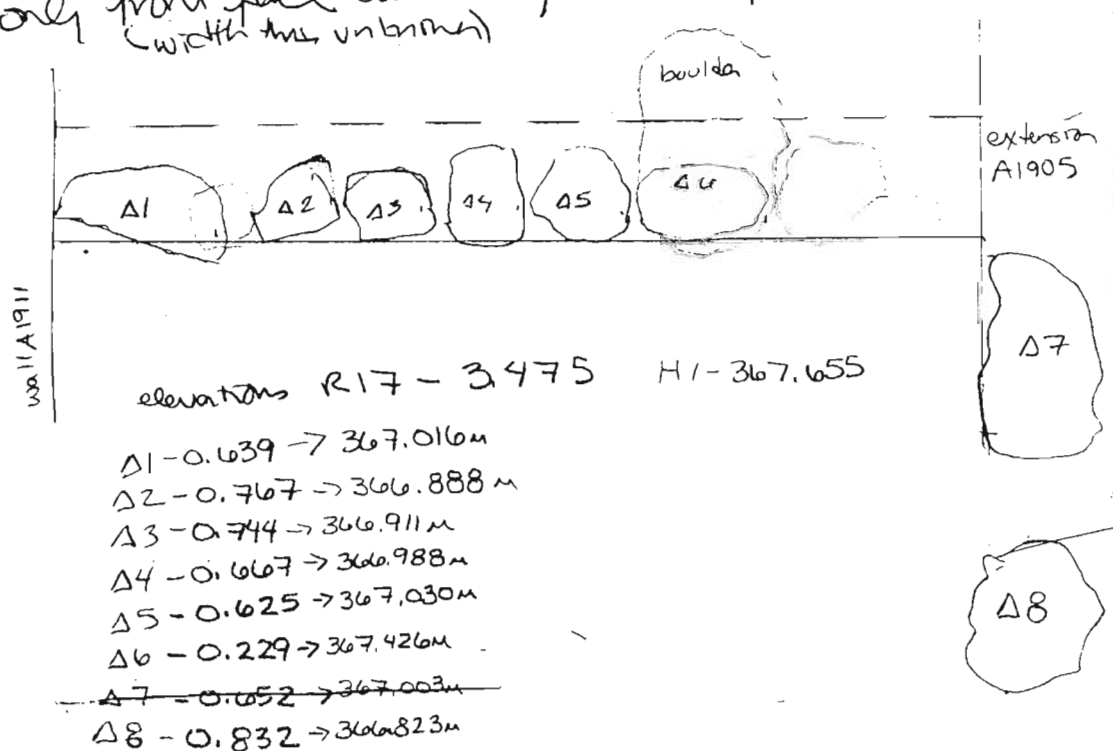 only from
(width thus unknown)
boulder
extension
A1905
Δ1
Δ2
Δ3
Δ4
Δ5
Δ6
Δ7
wall A1911
elevations R17 - 3.475 HI - 367.655
Δ1 - 0.639 → 367.016m
Δ2 - 0.767 → 366.888m
Δ3 - 0.744 → 366.911m
Δ4 - 0.667 → 366.988m
Δ5 - 0.625 → 367.030m
Δ6 - 0.229 → 367.426m
Δ7 - 0.652 → 367.003m
Δ8 - 0.832 → 366.823m
Δ8